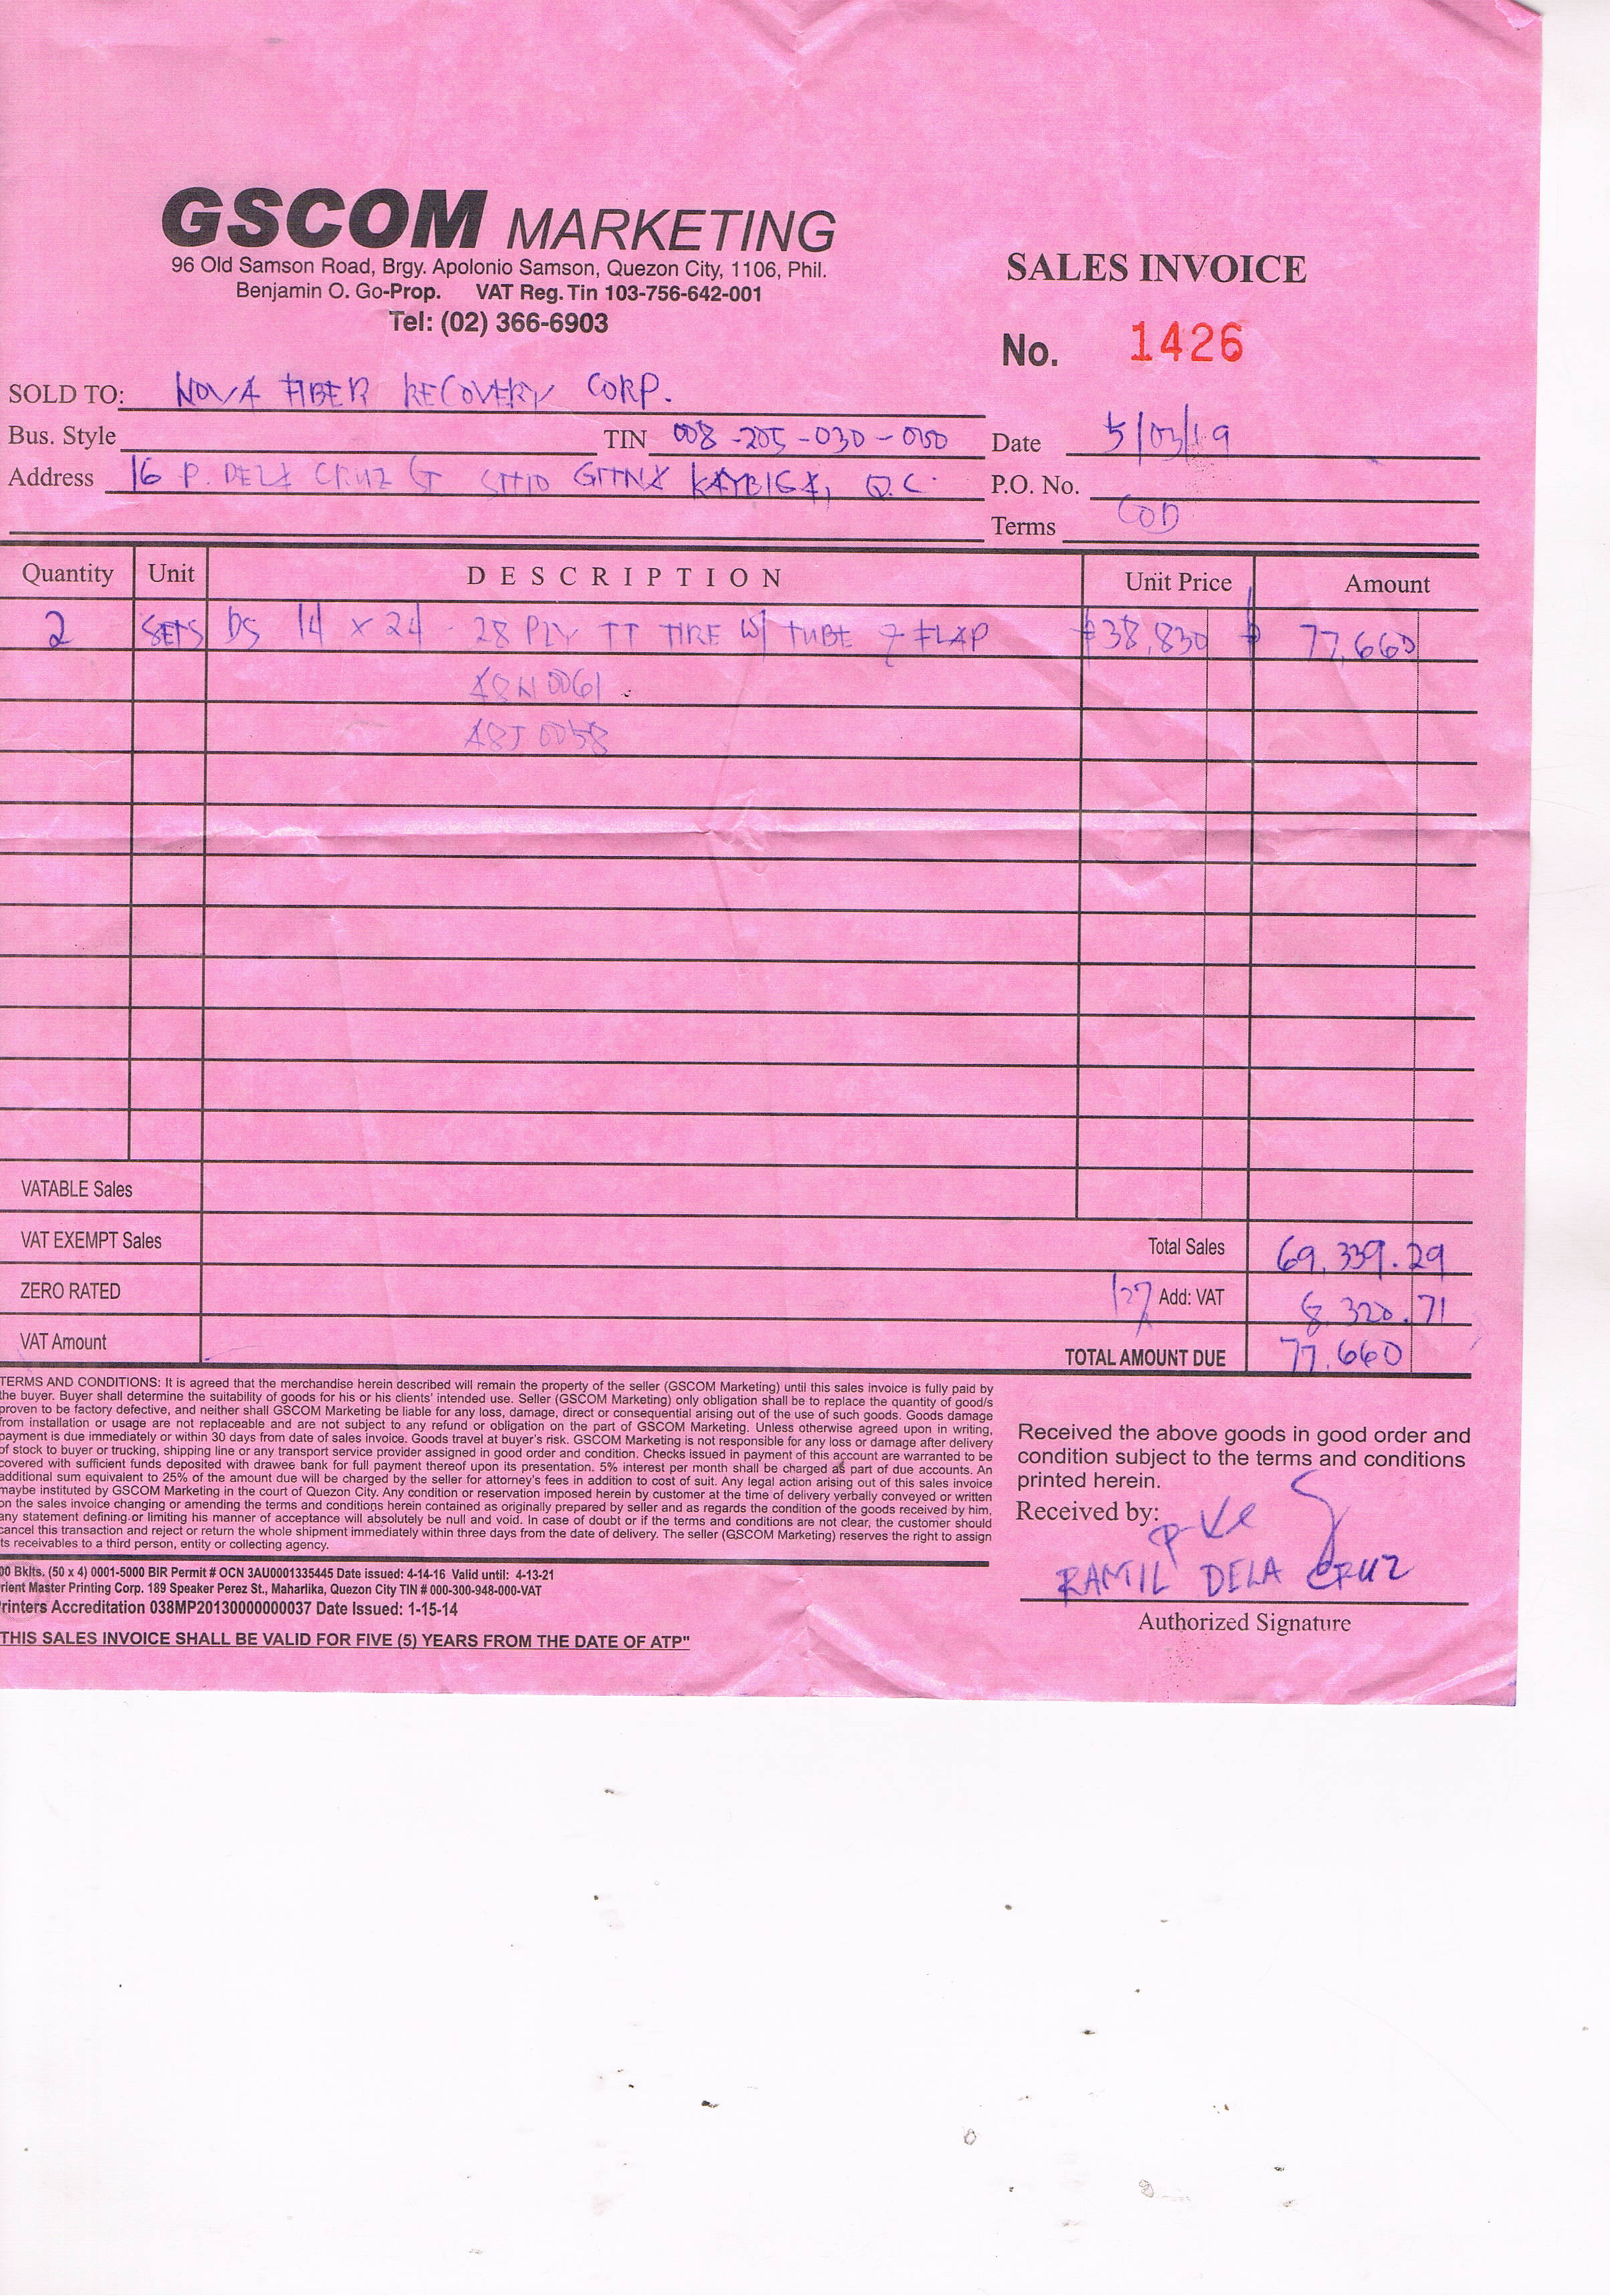 GSCOM MARKETING
96 Old Samson Road, Brgy. Apolonio Samson, Quezon City, 1106, Phil.
Benjamin O. Go-Prop. VAT Reg. Tin 103-756-642-001
Tel: (02) 366-6903
SALES INVOICE
No. 1426
SOLD TO: NOVA FIBER RECOVERY CORP.
Bus. Style TIN 008-205-030-000
Date 5/03/19
Address 16 P. DELA CRUZ ST SITIO GITNA KAYBIGA, Q.C.
P.O. No.
Terms COD
Quantity Unit DESCRIPTION Unit Price Amount
2 SETS DS 14 x 24 - 28 PLY TT TIRE W/ TUBE & FLAP ₱38,830 ₱ 77,660
A8N0061
A8J0058
VATABLE Sales
VAT EXEMPT Sales Total Sales 69,339.29
ZERO RATED 12% Add: VAT 8,320.71
VAT Amount TOTAL AMOUNT DUE 77,660
TERMS AND CONDITIONS: It is agreed that the merchandise herein described will remain the property of the seller (GSCOM Marketing) until this sales invoice is fully paid by
the buyer. Buyer shall determine the suitability of goods for his or his clients' intended use. Seller (GSCOM Marketing) only obligation shall be to replace the quantity of good/s
proven to be factory defective, and neither shall GSCOM Marketing be liable for any loss, damage, direct or consequential arising out of the use of such goods. Goods damage
from installation or usage are not replaceable and are not subject to any refund or obligation on the part of GSCOM Marketing. Unless otherwise agreed upon in writing,
payment is due immediately or within 30 days from date of sales invoice. Goods travel at buyer's risk. GSCOM Marketing is not responsible for any loss or damage after delivery
of stock to buyer or trucking, shipping line or any transport service provider assigned in good order and condition. Checks issued in payment of this account are warranted to be
covered with sufficient funds deposited with drawee bank for full payment thereof upon its presentation. 5% interest per month shall be charged as part of due accounts. An
additional sum equivalent to 25% of the amount due will be charged by the seller for attorney's fees in addition to cost of suit. Any legal action arising out of this sales invoice
maybe instituted by GSCOM Marketing in the court of Quezon City. Any condition or reservation imposed herein by customer at the time of delivery verbally conveyed or written
on the sales invoice changing or amending the terms and conditions herein contained as originally prepared by seller and as regards the condition of the goods received by him,
any statement defining or limiting his manner of acceptance will absolutely be null and void. In case of doubt or if the terms and conditions are not clear, the customer should
cancel this transaction and reject or return the whole shipment immediately within three days from the date of delivery. The seller (GSCOM Marketing) reserves the right to assign
ts receivables to a third person, entity or collecting agency.
00 Bklts. (50 x 4) 0001-5000 BIR Permit # OCN 3AU0001335445 Date issued: 4-14-16 Valid until: 4-13-21
rient Master Printing Corp. 189 Speaker Perez St., Maharlika, Quezon City TIN # 000-300-948-000-VAT
rinters Accreditation 038MP20130000000037 Date Issued: 1-15-14
THIS SALES INVOICE SHALL BE VALID FOR FIVE (5) YEARS FROM THE DATE OF ATP"
Received the above goods in good order and
condition subject to the terms and conditions
printed herein.
Received by:
RAMIL DELA CRUZ
Authorized Signature